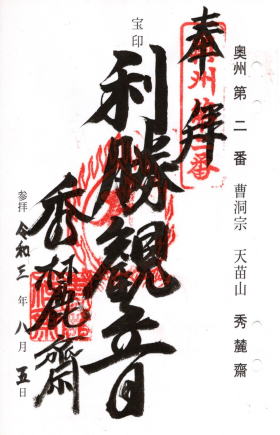 奥州第二番 曹洞宗 天苗山 秀麓齋
奉拝
奥州第二番
宝印
利勝觀音
秀麓齋
参拝 令和三年八月五日